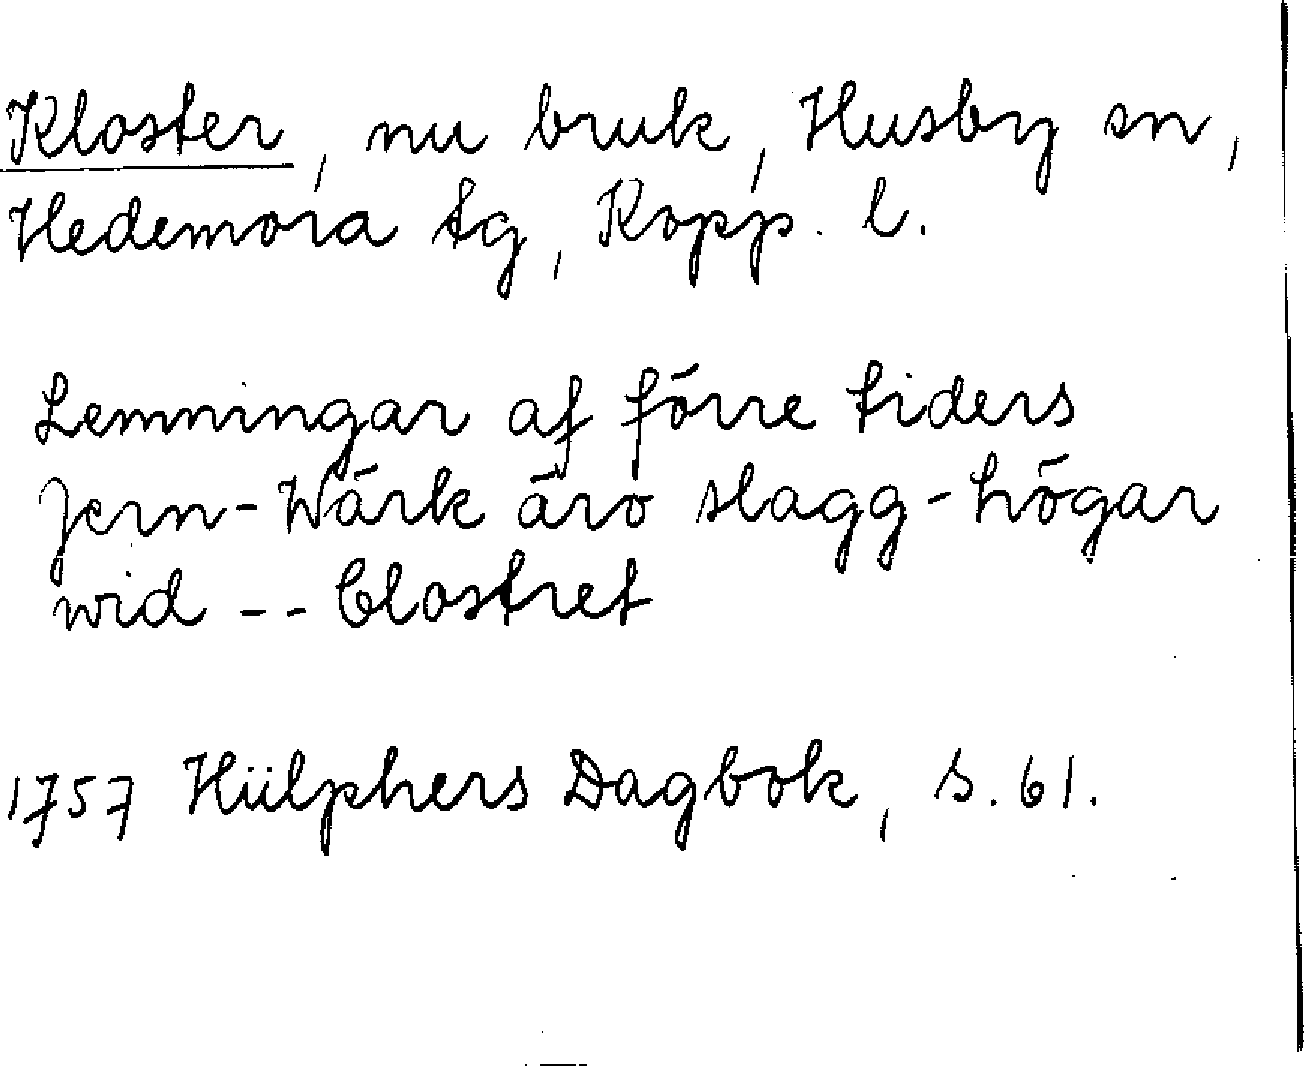 Kloster, nu bruk, Husby sn,
Hedemora tg, Kopp. l.
Lemningar af förre tiders
Jern-Wärk äro slagg-högar
wid -- Clostret
1757 Hülphers Dagbok, s. 61.